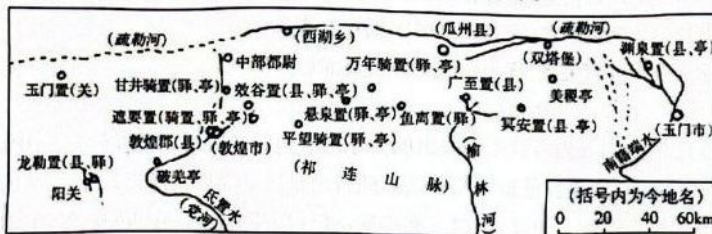 (疏勒河)
(西湖乡)
(瓜州县)
(疏勒河)
渊泉置(县、亭)
(双塔堡)
中部都尉
万年骑置(驿、亭)
玉门置(关)
甘井骑置(驿、亭)
效谷置(县、驿、亭)
广至置(县)
美稷亭
遮要置(骑置、驿、亭)
悬泉置(驿、亭)
鱼离置(驿)
冥安置(县、亭)
(玉门市)
敦煌郡(县)
(敦煌市)
平望骑置(驿、亭)
龙勒置(县、驿)
破羌亭
(祁连山脉)
(榆林河)
南籍端水
阳关
氐置水
(党河)
(括号内为今地名)
0 20 40 60km